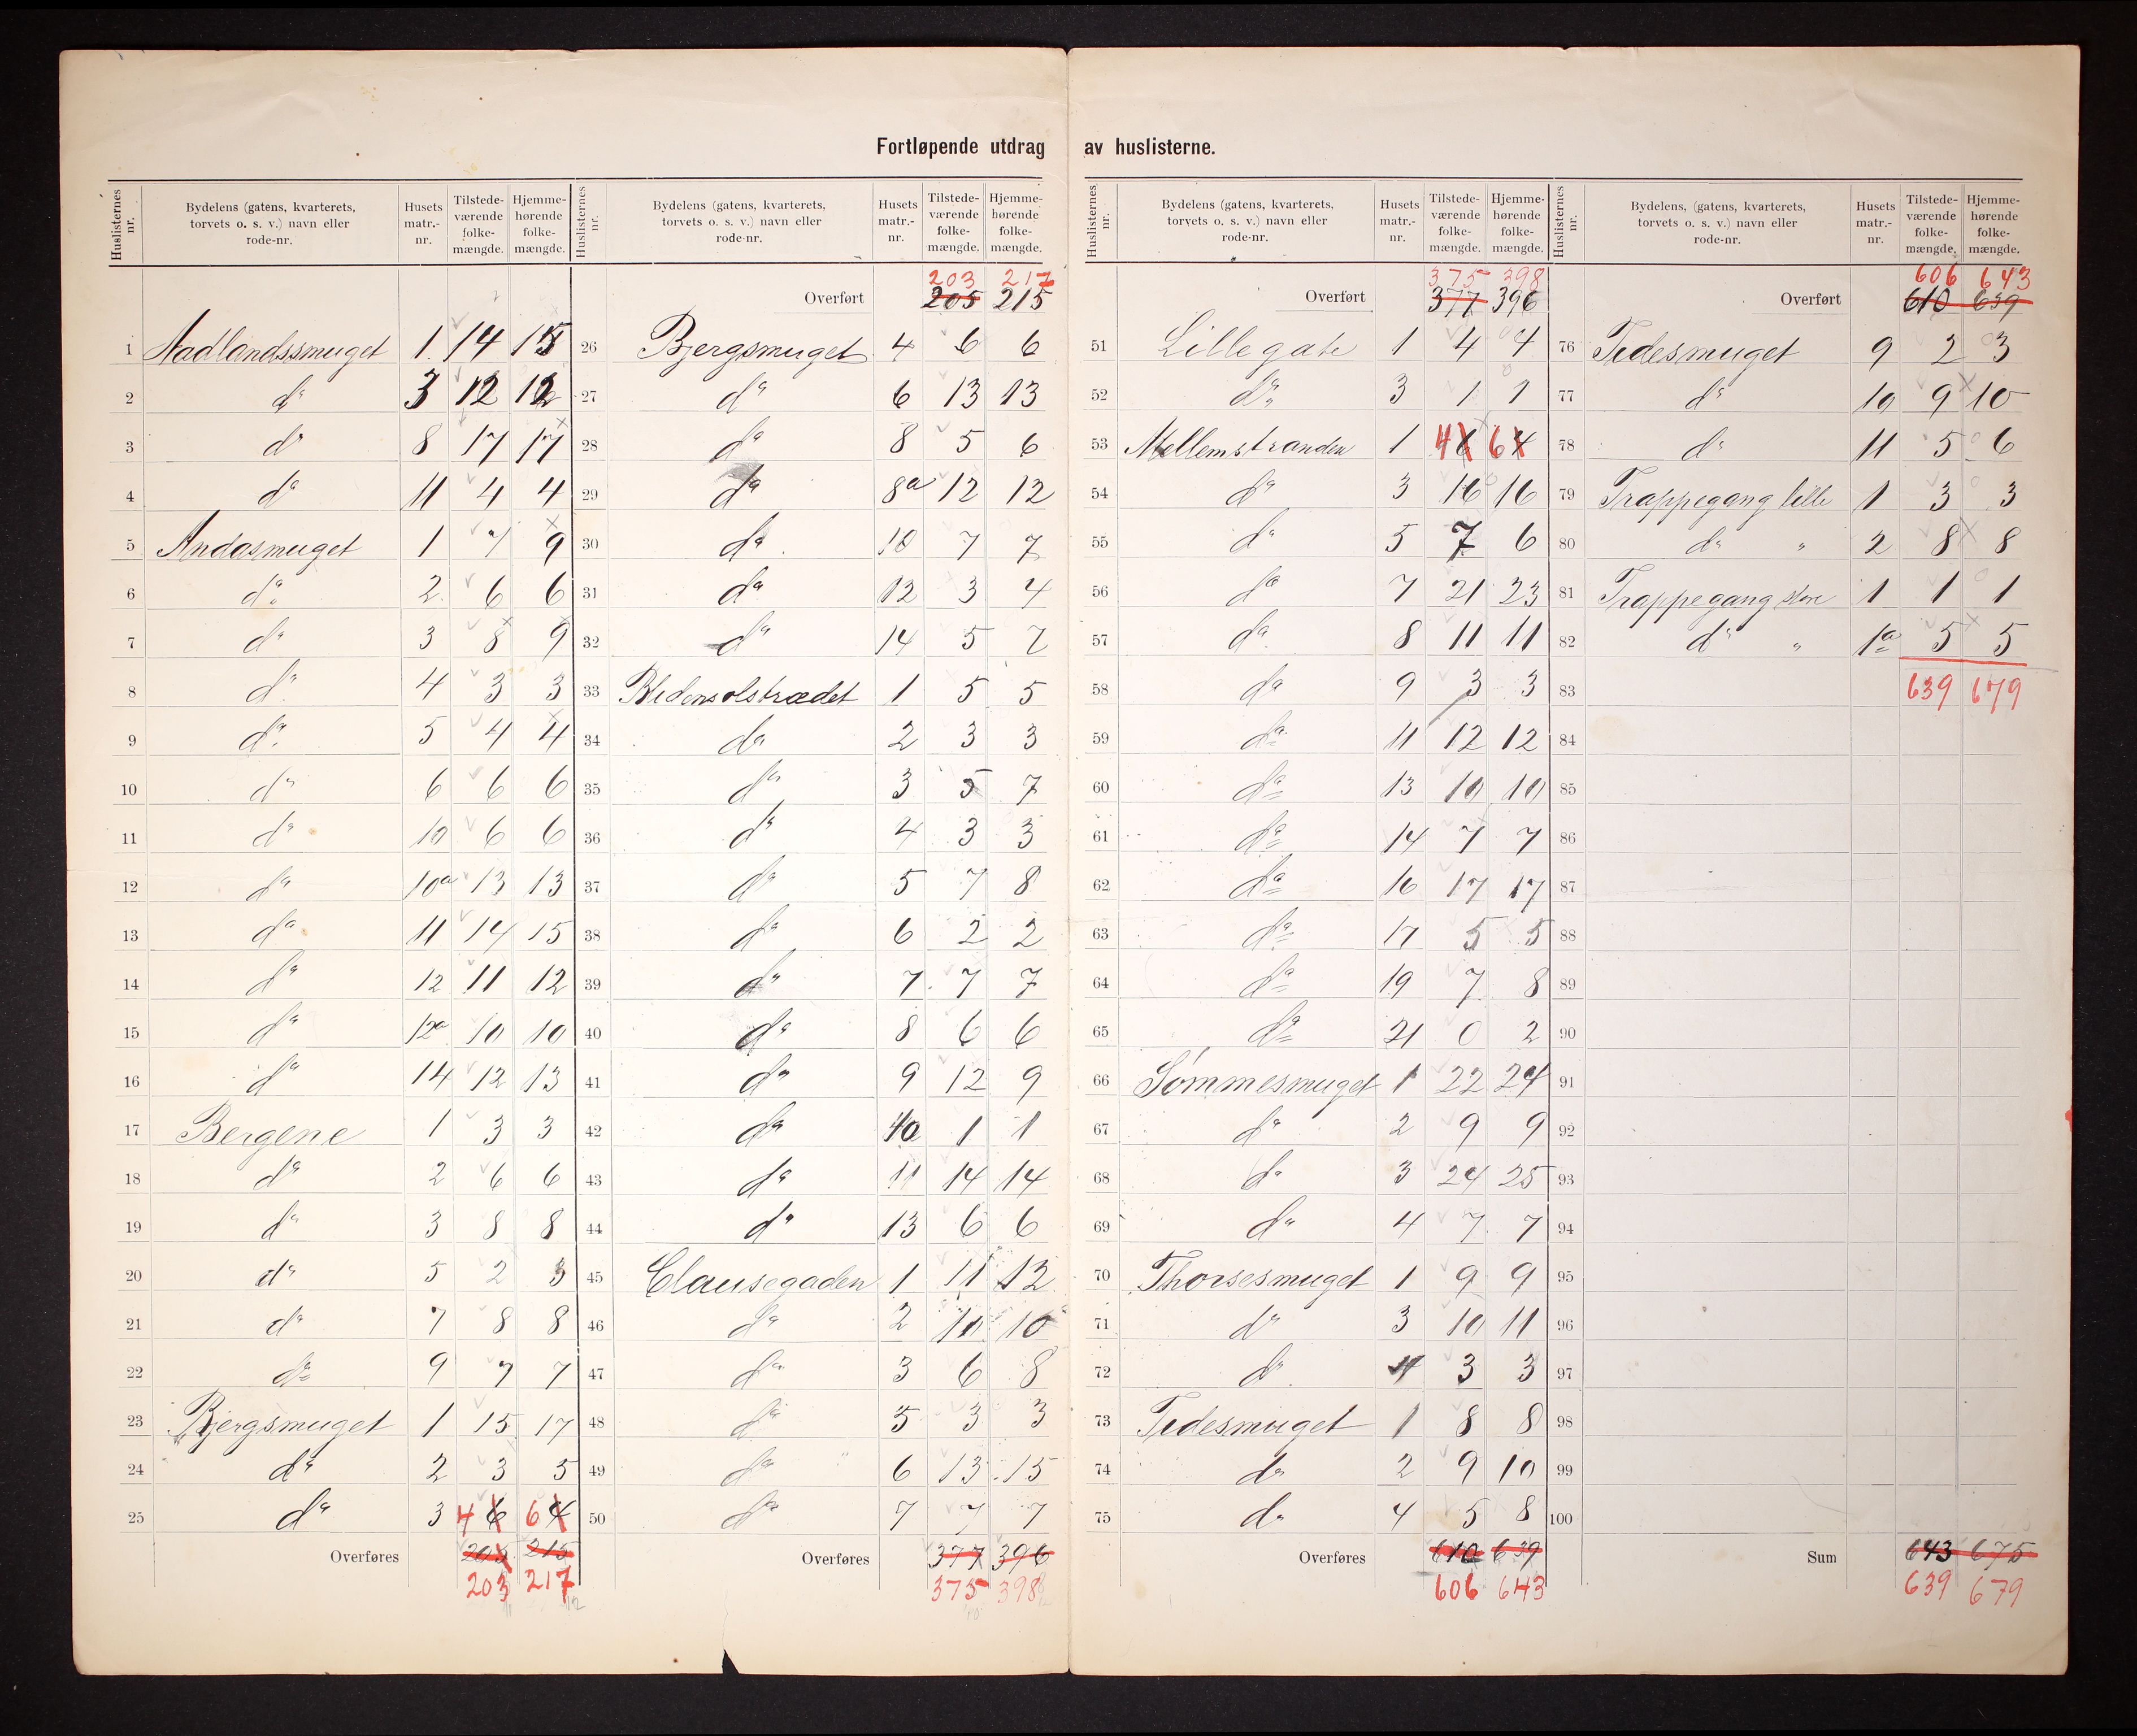 Fortløpende utdrag av huslisterne.
Huslisternes nr. | Bydelens (gatens, kvarterets, torvets o. s. v.) navn eller rode-nr. | Husets matr.-nr. | Tilstede-værende folke-mængde. | Hjemme-hørende folke-mængde.
1 Aadlandssmuget 1 14 15
2 do 3 12 12
3 do 8 17 17
4 do 11 4 4
5 Andasmuget 1 7 9
6 do 2 6 6
7 do 3 8 9
8 do 4 3 3
9 do 5 4 4
10 do 6 6 6
11 do 10 6 6
12 do 10a 13 13
13 do 11 14 15
14 do 12 11 12
15 do 12a 10 10
16 do 14 12 13
17 Bergene 1 3 3
18 do 2 6 6
19 do 3 8 8
20 do 5 2 3
21 do 7 8 8
22 do 9 7 7
23 Bjergsmuget 1 15 17
24 do 2 3 5
25 do 3 4 6 6 4
Overføres 205 215
203 217
Huslisternes nr. | Bydelens (gatens, kvarterets, torvets o. s. v.) navn eller rode-nr. | Husets matr.-nr. | Tilstede-værende folke-mængde. | Hjemme-hørende folke-mængde.
203 217
Overført 205 215
26 Bjergsmuget 4 6 6
27 do 6 13 13
28 do 8 5 6
29 do 8a 12 12
30 do 10 7 7
31 do 12 3 4
32 do 14 5 7
33 Blidensolstrædet 1 5 5
34 do 2 3 3
35 do 3 5 7
36 do 4 3 3
37 do 5 7 8
38 do 6 2 2
39 do 7 7 7
40 do 8 6 6
41 do 9 12 9
42 do 10 1 1
43 do 11 14 14
44 do 13 6 6
45 Clausegaden 1 11 12
46 do 2 10 10
47 do 3 6 8
48 do 5 3 3
49 do 6 13 15
50 do 7 7 7
Overføres 377 396
375 398
Huslisternes nr. | Bydelens (gatens, kvarterets, torvets o. s. v.) navn eller rode-nr. | Husets matr.-nr. | Tilstede-værende folke-mængde. | Hjemme-hørende folke-mængde.
375 398
Overført 377 396
51 Lillegate 1 4 4
52 do 3 1 1
53 Mellemstranden 1 4 6 6 4
54 do 3 16 16
55 do 5 7 6
56 do 7 21 23
57 do 8 11 11
58 do 9 3 3
59 do 11 12 12
60 do 13 10 10
61 do 14 7 7
62 do 16 17 17
63 do 17 5 5
64 do 19 7 8
65 do 21 0 2
66 Sømmesmuget 1 22 24
67 do 2 9 9
68 do 3 24 25
69 do 4 7 7
70 Thorsesmuget 1 9 9
71 do 3 10 11
72 do 4 3 3
73 Tedesmuget 1 8 8
74 do 2 9 10
75 do 4 5 8
Overføres 610 639
606 643
Huslisternes nr. | Bydelens, (gatens, kvarterets, torvets o. s. v.) navn eller rode-nr. | Husets matr.-nr. | Tilstede-værende folke-mængde. | Hjemme-hørende folke-mængde.
606 643
Overført 610 639
76 Tedesmuget 9 2 3
77 do 10 9 10
78 do 11 5 6
79 Trappegang lille 1 3 3
80 do " 2 8 8
81 Trappegang store 1 1 1
82 do " 1a 5 5
83 639 679
84
85
86
87
88
89
90
91
92
93
94
95
96
97
98
99
100
Sum 643 675
639 679